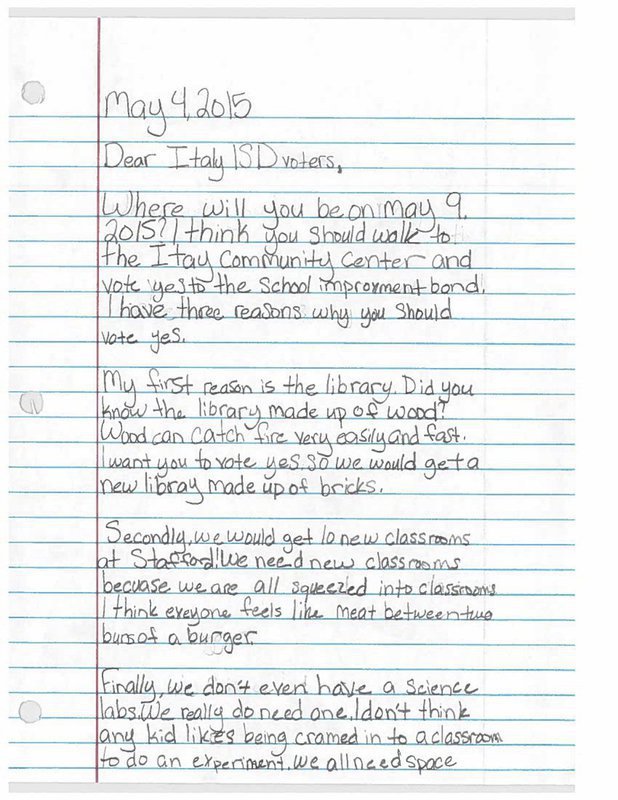 May 4, 2015
Dear Italy ISD voters,
Where will you be on may 9,
2015? I think you should walk to
the Itay Community Center and
vote yes to the School improvment bond.
I have three reasons why you should
vote yes.
My first reason is the library. Did you
know the library made up of wood?
Wood can catch fire very easily and fast.
I want you to vote yes. So we would get a
new libray made up of bricks.
Secondly, we would get 10 new classrooms
at Stafford! We need new classrooms
becuase we are all squeezed into classrooms
I think eveyone feels like meat between two
buns of a burger.
Finally, we don't even have a science
labs. We really do need one. I don't think
any kid likes being cramed in to a classroom
to do an experiment. We all need space